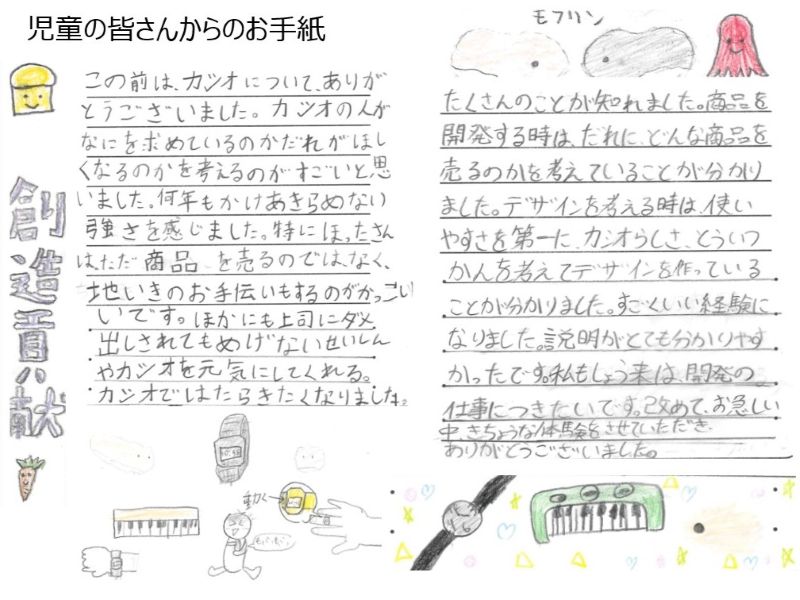 児童の皆さんからのお手紙
この前は、カシオについて、ありが
とうございました。カシオの人が
なにを求めているのかだれがほし
くなるのかを考えるのがすごいと思
いました。何年もかけあきらめない
強さを感じました。特にほったさん
は、ただ商品を売るのでは、なく、
地いきのお手伝いもするのがかっこい
いです。ほかにも上司にダメ
出しされてもめげないせいしん
やカシオを元気にしてくれる。
カシオではたらきたくなりました。
創造貢献
動く
モフリン
たくさんのことが知れました。商品を
開発する時は、だれに、どんな商品を
売るのかを考えていることが分かり
ました。デザインを考える時は、使い
やすさを第一に、カシオらしさ、とういつ
かんを考えてデザインを作っている
ことが分かりました。すごくいい経験に
なりました。説明がとても分かりやす
かったです。私もしょう来は、開発の
仕事につきたいです。改めて、お忙しい
中、きちょうな体験をさせていただき、
ありがとうございました。